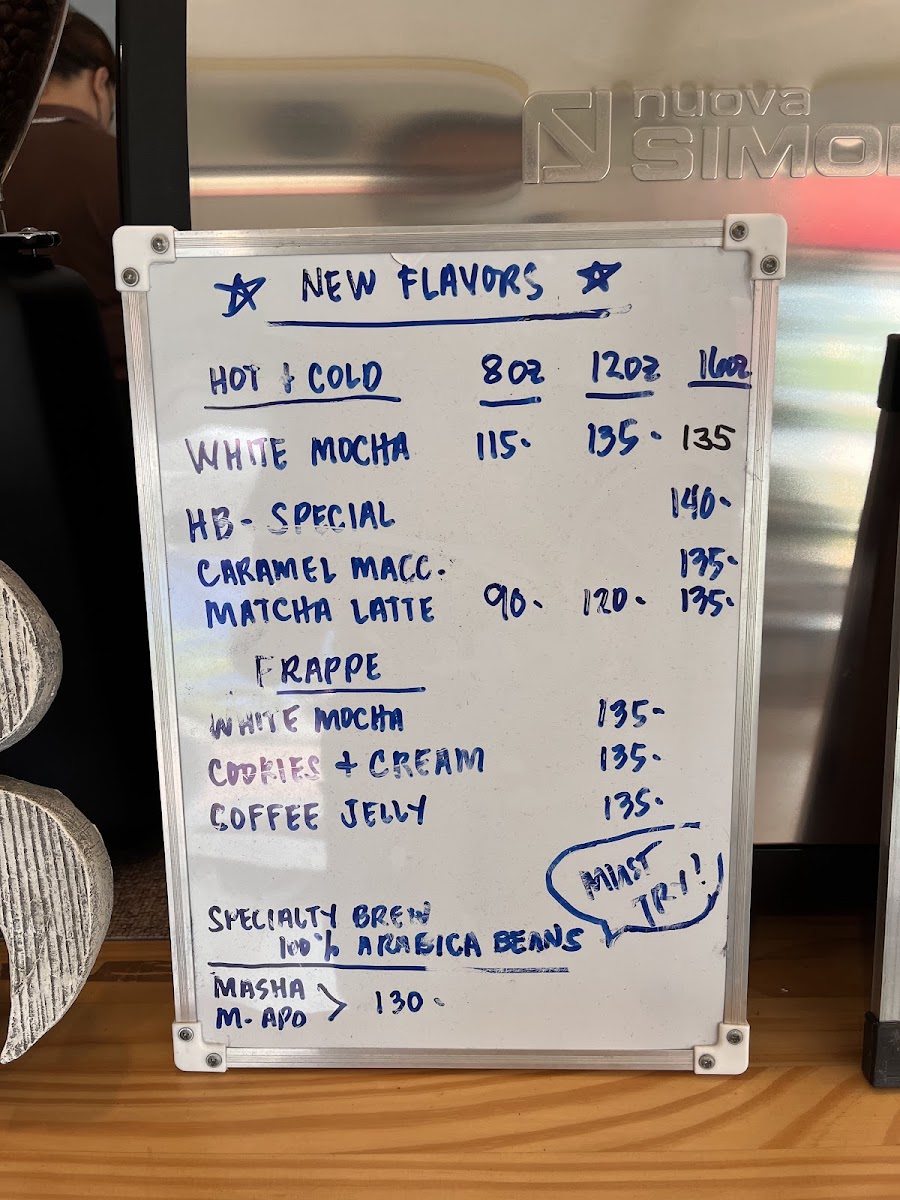 nuova
SIMO
NEW FLAVORS
HOT & COLD 8oz 12oz 16oz
WHITE MOCHA 115- 135- 135
HB- SPECIAL 140-
CARAMEL MACC. 135-
MATCHA LATTE 90- 120- 135-
FRAPPE
WHITE MOCHA 135-
COOKIES + CREAM 135-
COFFEE JELLY 135-
MUST
TRY!
SPECIALTY BREW
100% ARABICA BEANS
MASHA
M. APO > 130-